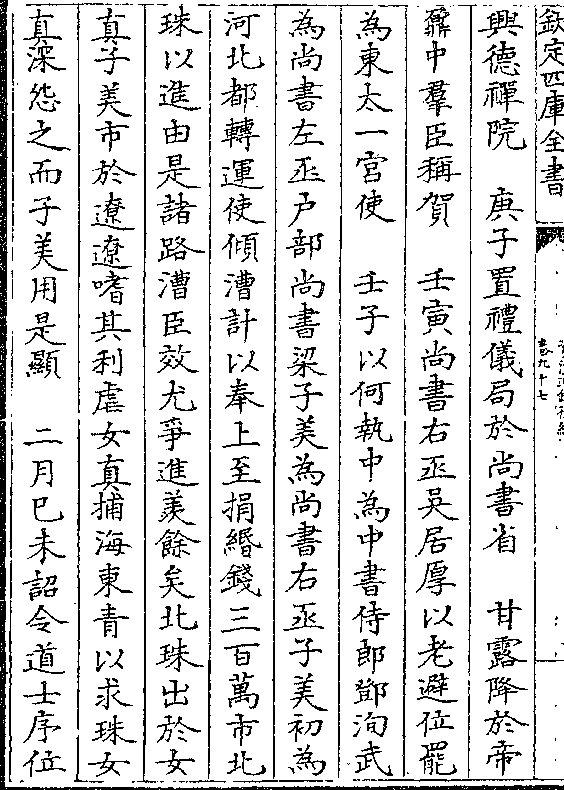 欽定四庫全書
卷九十七
興德禪院　庚子置禮儀局於尚書省　甘露降於帝
鼐中羣臣稱賀　壬寅尚書右丞吳居厚以老避位罷
為東太一宮使　壬子以何執中為中書侍郎鄧洵武
為尚書左丞戶部尚書梁子美為尚書右丞子美初為
河北都轉運使傾漕計以奉上至捐緡錢三百萬市北
珠以進由是諸路漕臣效尤爭進羨餘矣北珠出於女
真子美市於遼遼嗜其利虐女真捕海東青以求珠女
真深怨之而子美用是顯　二月巳未詔令道士序位